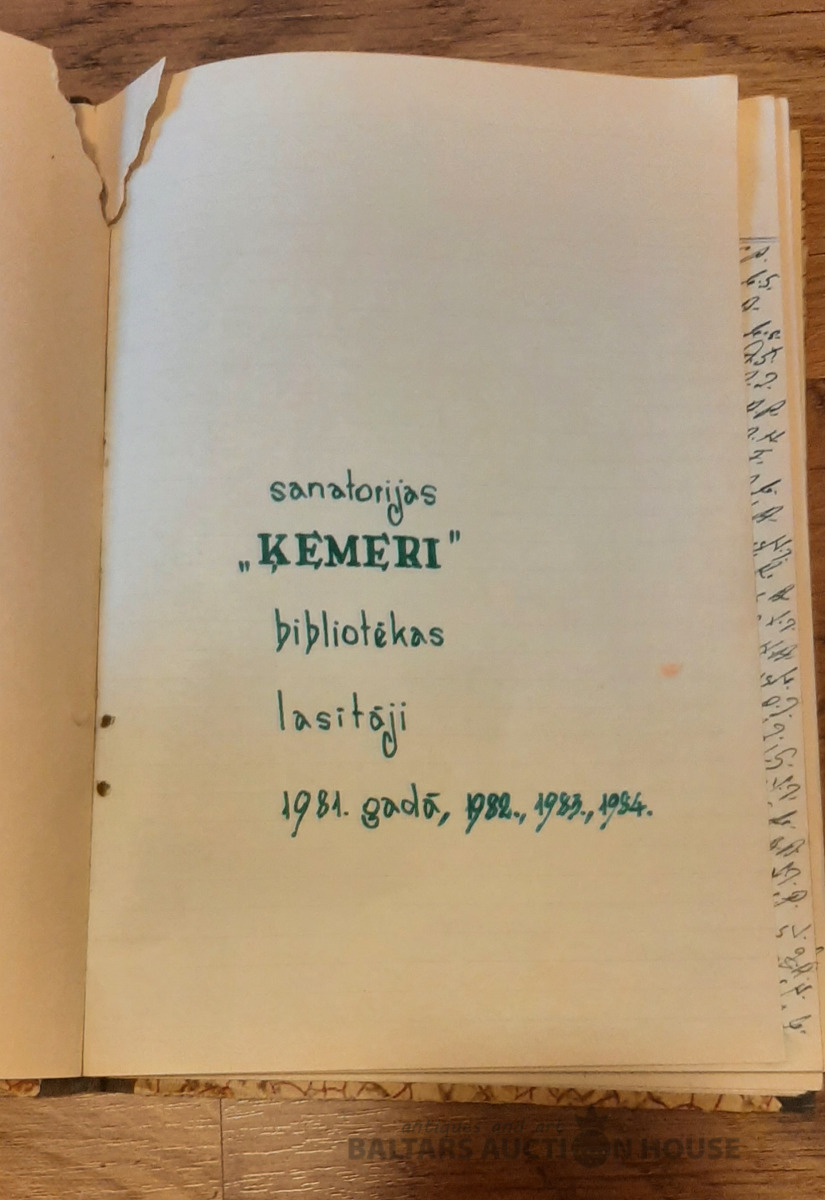 sanatorijas
„ĶEMERI"
bibliotēkas
lasītāji
1981. gadā, 1982., 1983., 1984.
antiques and art
BALTARS AUCTION HOUSE